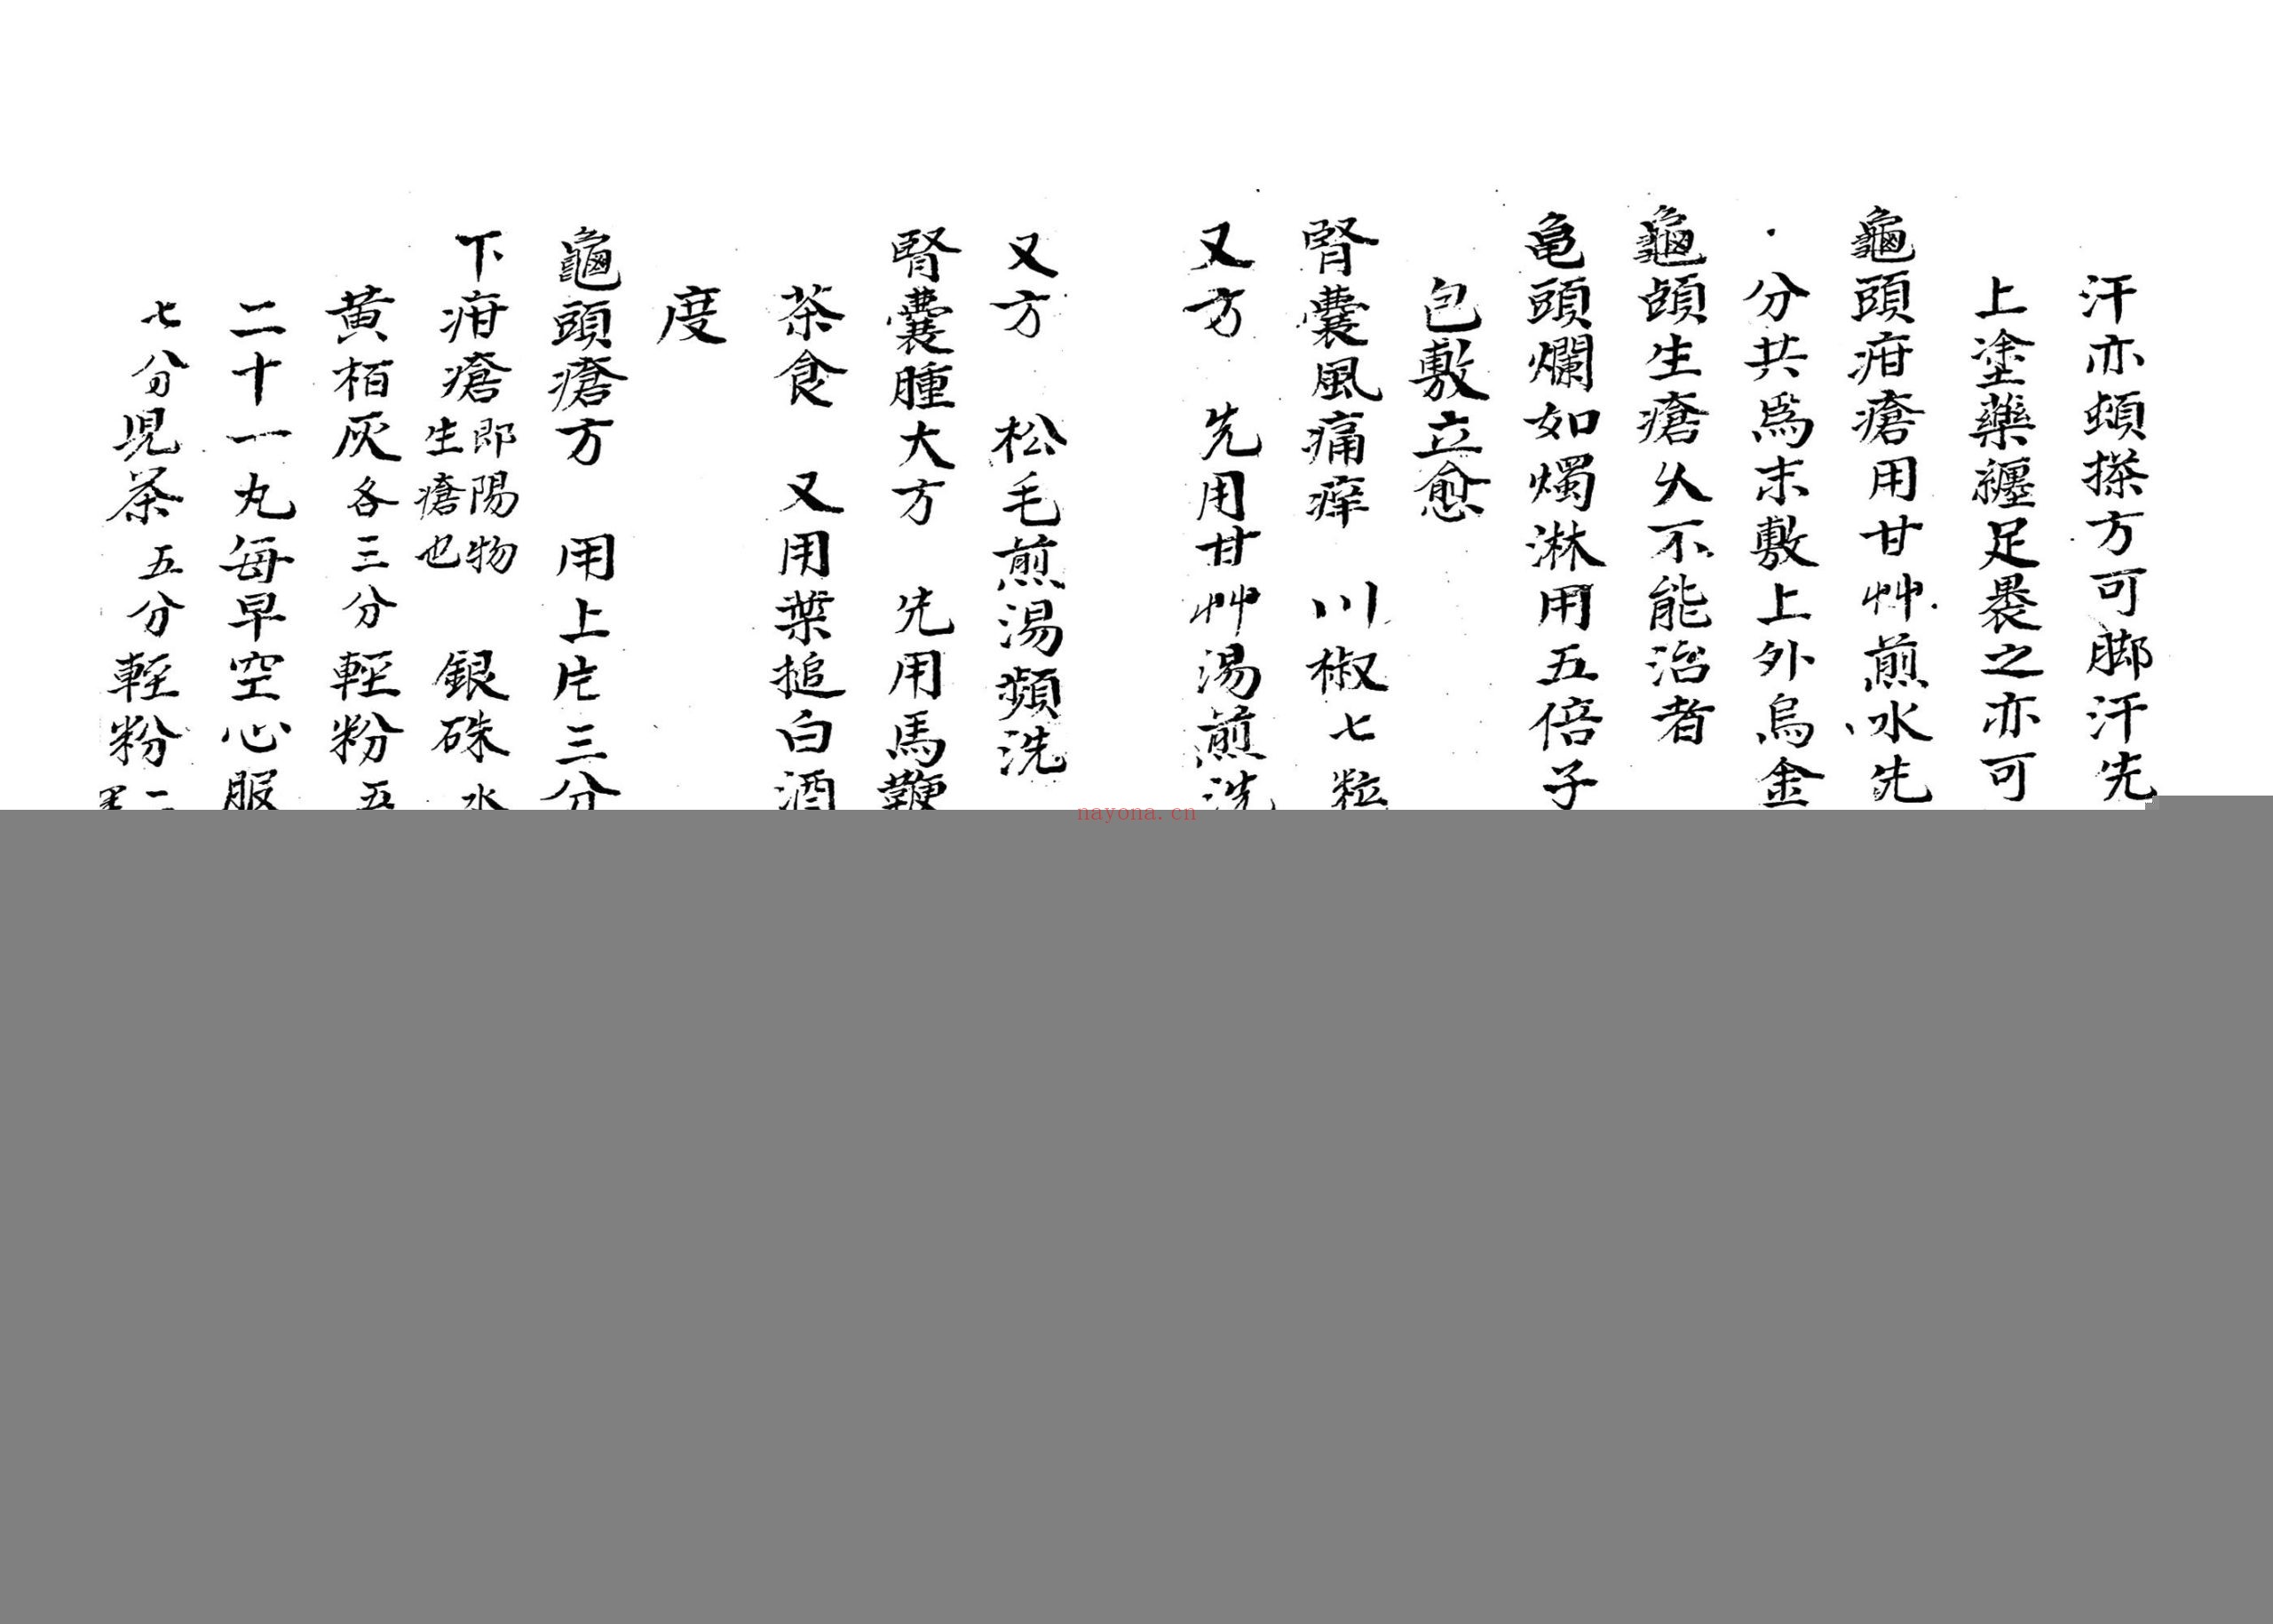 汗亦頻搽方可脚汗先
上塗藥纏足暴之亦可
龜頭疳瘡用甘艸煎水先
分共爲末敷上外烏金
龜頭生瘡久不能治者
亀頭爛如燭淋用五倍子
包敷立愈
腎囊風痛癢 川椒七粒
又方 先用甘艸湯煎洗
又方 松毛煎湯頻洗
腎囊腫大方 先用馬鞭
茶食 又用葉搥白酒
度
龜頭瘡方 用上片三分
下疳瘡 即陽物生瘡也 銀硃 水
黄栢灰各三分輕粉五
二十一丸每早空心服
七分児茶五分輕粉二
nayona.cn